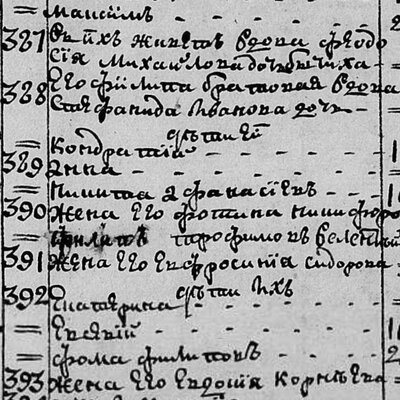 = Максимъ - - - - 2
387 Въ тѣхъ живетъ вдова Феодо
сія Михайлова дочь бывша -
388 Его Филипа братовая вдова
Стефанида Иванова дочь -
дѣтаи Еи
= Кондратаіи - - - 1
389 Анна - - - - -
= Никита Афанасіевъ - - 1
390 Жена Его Фотина Никифоро
= Филипъ Трофимовъ
391 Жена Его Евфросинія Сидорова -
дѣтаи Ихъ
392 Екатерина - - - -
= Евсѣвій - - - - 1
= Фома Филиповъ - - - 2
393 Жена Его Евдокія Корнѣева -